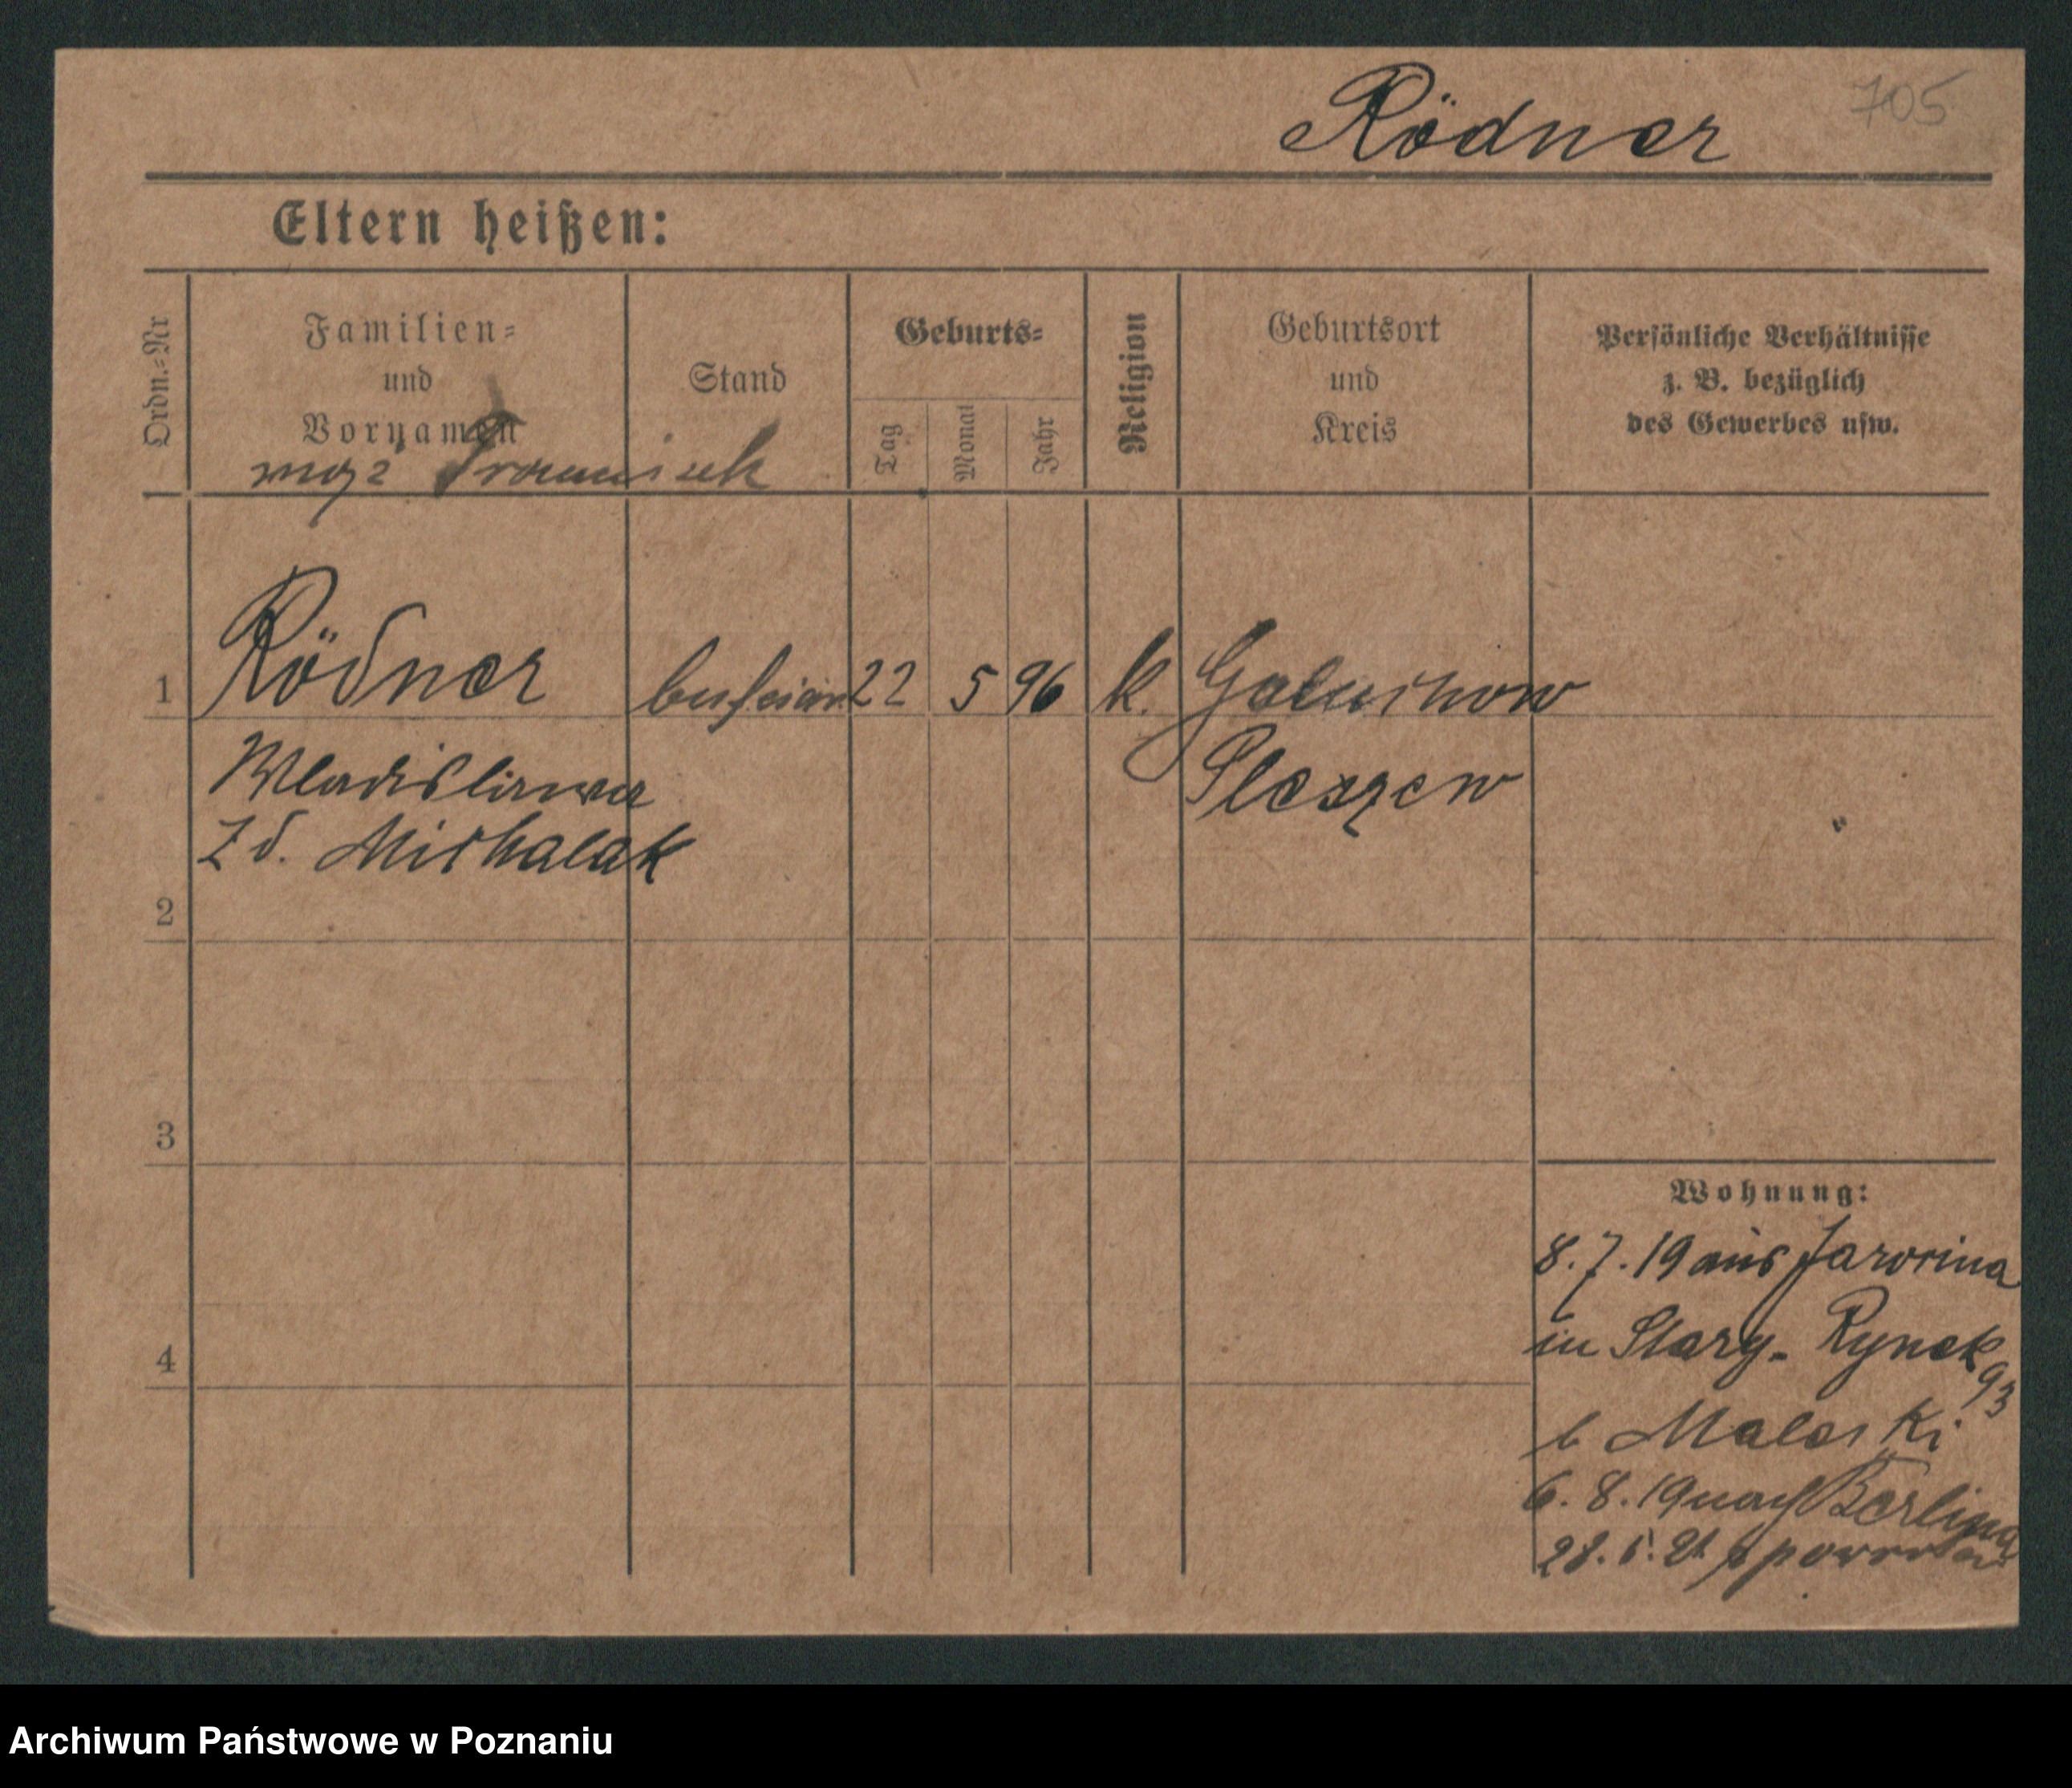 705
Rödner
Eltern heißen:
Ordn.=Nr
Familien=
und
Vornamen
Stand
Geburts=
Tag
Monat
Jahr
Religion
Geburtsort
und
Kreis
Persönliche Verhältnisse
z. B. bezüglich
des Gewerbes usw.
mąż Franciszek
1 Rödner 22 5 96 k. Goluchow
Wladislawa Pleszew
Zd. Michalak
2
3
4
Wohnung:
8. 7. 19 aus Jarocina
in Stary-Rynek
93
b Maleski
6. 8. 19 nach Berlina